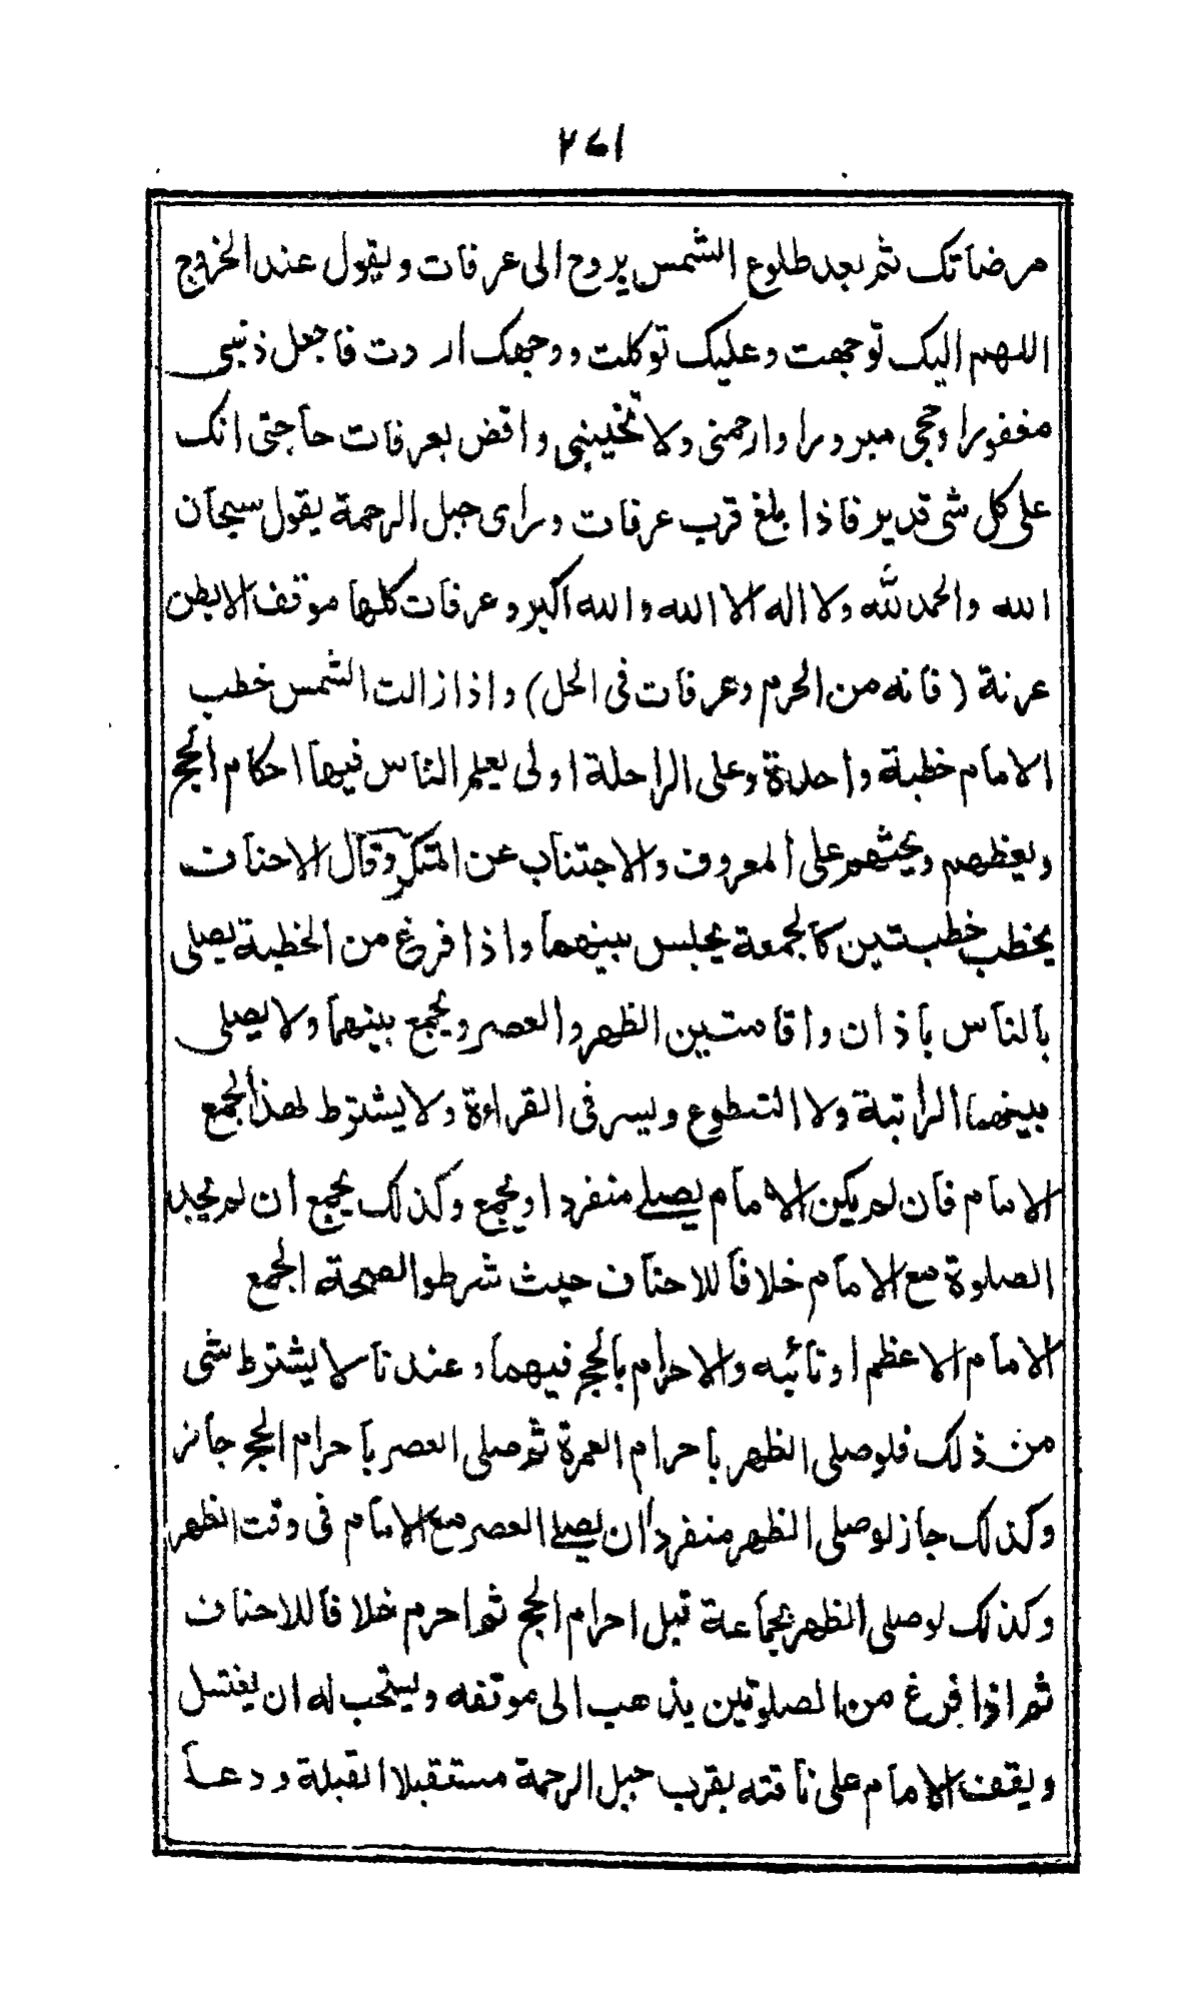 ٢٧١
مرضاتك ثم بعد طلوع الشمس يروح الى عرفات ويقول عند الخروج
اللهم اليك توجهت وعليك توكلت ووجهك اردت فاجعل ذنبى
مغفورا وحجى مبرورا وارحمنى ولا تخيبنى واقض بعرفات حاجتى انك
على كل شى قدير فاذا بلغ قرب عرفات وراى جبل الرحمة يقول سبحان
الله والحمد لله ولا اله الا الله والله اكبر وعرفات كلها موقف الا بطن
عرنة (فانه من الحرم وعرفات فى الحل) واذا زالت الشمس خطب
الامام خطبة واحدة وعلى الراحلة اولى يعلم الناس فيها احكام الحج
ويعظهم ويحثهم على المعروف والاجتناب عن المنكر وقال الاحناف
يخطب خطبتين كالجمعة يجلس بينهما واذا فرغ من الخطبة يصلى
بالناس باذان واقامتين الظهر والعصر ويجمع بينهما ولا يصلى
بينهما الراتبة ولا التطوع ويسر فى القراءة ولا يشترط لهذا الجمع
الامام فان لم يكن الامام يصلے منفردا ويجمع وكذلك يجمع ان لم يجد
الصلوة مع الامام خلافا للاحناف حيث شرطوا لصحة الجمع
الامام الاعظم او نائبه والاحرام بالحج فيهما وعندنا لا يشترط شى
من ذلك فلو صلى الظهر باحرام العمرة ثم صلى العصر باحرام الحج جائز
وكذلك جاز لو صلى الظهر منفردا ان يصلے العصر مع الامام فى وقت الظهر
وكذلك لو صلى الظهر بجماعة قبل احرام الحج ثم احرم خلافا للاحناف
ثم اذا فرغ من الصلوتين يذهب الى موقفه ويستحب له ان يغتسل
ويقف الامام على ناقته بقرب جبل الرحمة مستقبلا القبلة ودعا